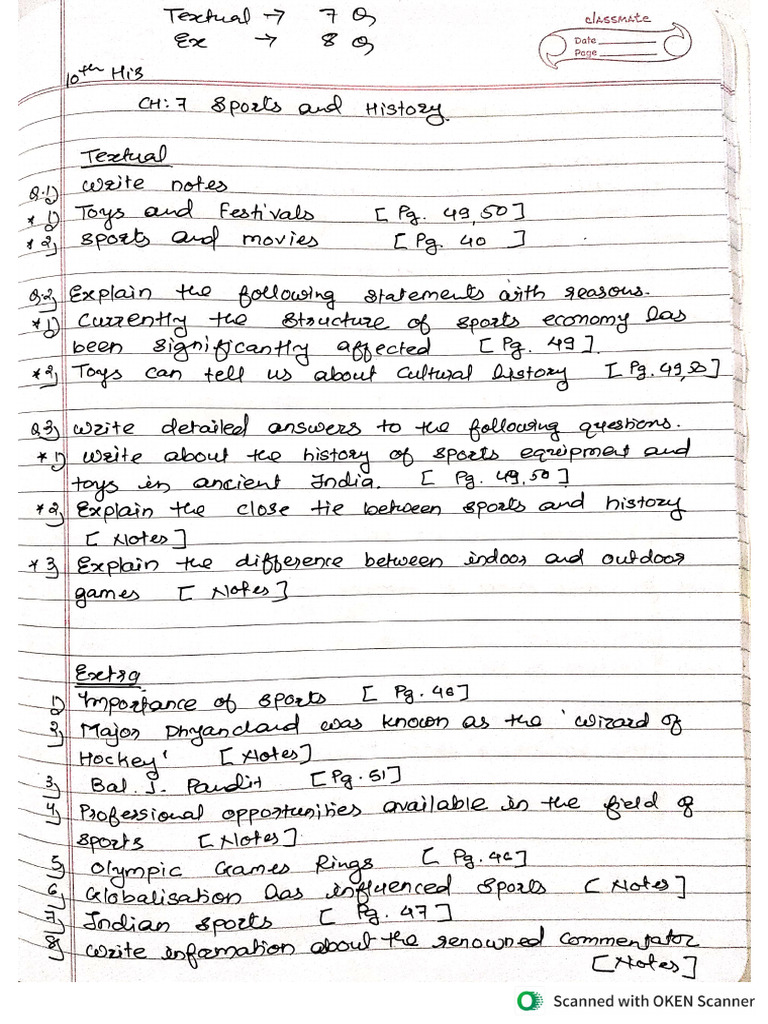 Textual → 7 Q
Ex → 8 Q
classmate
Date
Page
10th His
CH: 7 Sports and History.
Textual
Q.1) Write notes
* 1) Toys and Festivals [ Pg. 49,50 ]
* 2) Sports and movies [ Pg. 40 ]
Q.2) Explain the following statements with reasons.
* 1) Currently the structure of sports economy has
been significantly affected [ Pg. 49 ].
* 2) Toys can tell us about cultural history [ Pg. 49,50 ]
Q.3) Write detailed answers to the following questions.
* 1) Write about the history of sports equipment and
toys in ancient India. [ Pg. 49,50 ]
* 2) Explain the close tie between sports and history
[ Notes ]
* 3) Explain the difference between indoor and outdoor
games [ Notes ]
Extra
1) Importance of sports [ Pg. 46 ]
2) Major Dhyanchand was known as the 'wizard of
Hockey' [ Notes ]
3) Bal. J. Pandit [ Pg. 51 ]
4) Professional opportunities available in the field of
sports [ Notes ].
5) Olympic Games Rings [ Pg. 46 ]
6) Globalisation has influenced sports [ Notes ]
7) Indian sports [ Pg. 47 ]
8) Write information about the renowned commentator
[ Notes ]
Scanned with OKEN Scanner